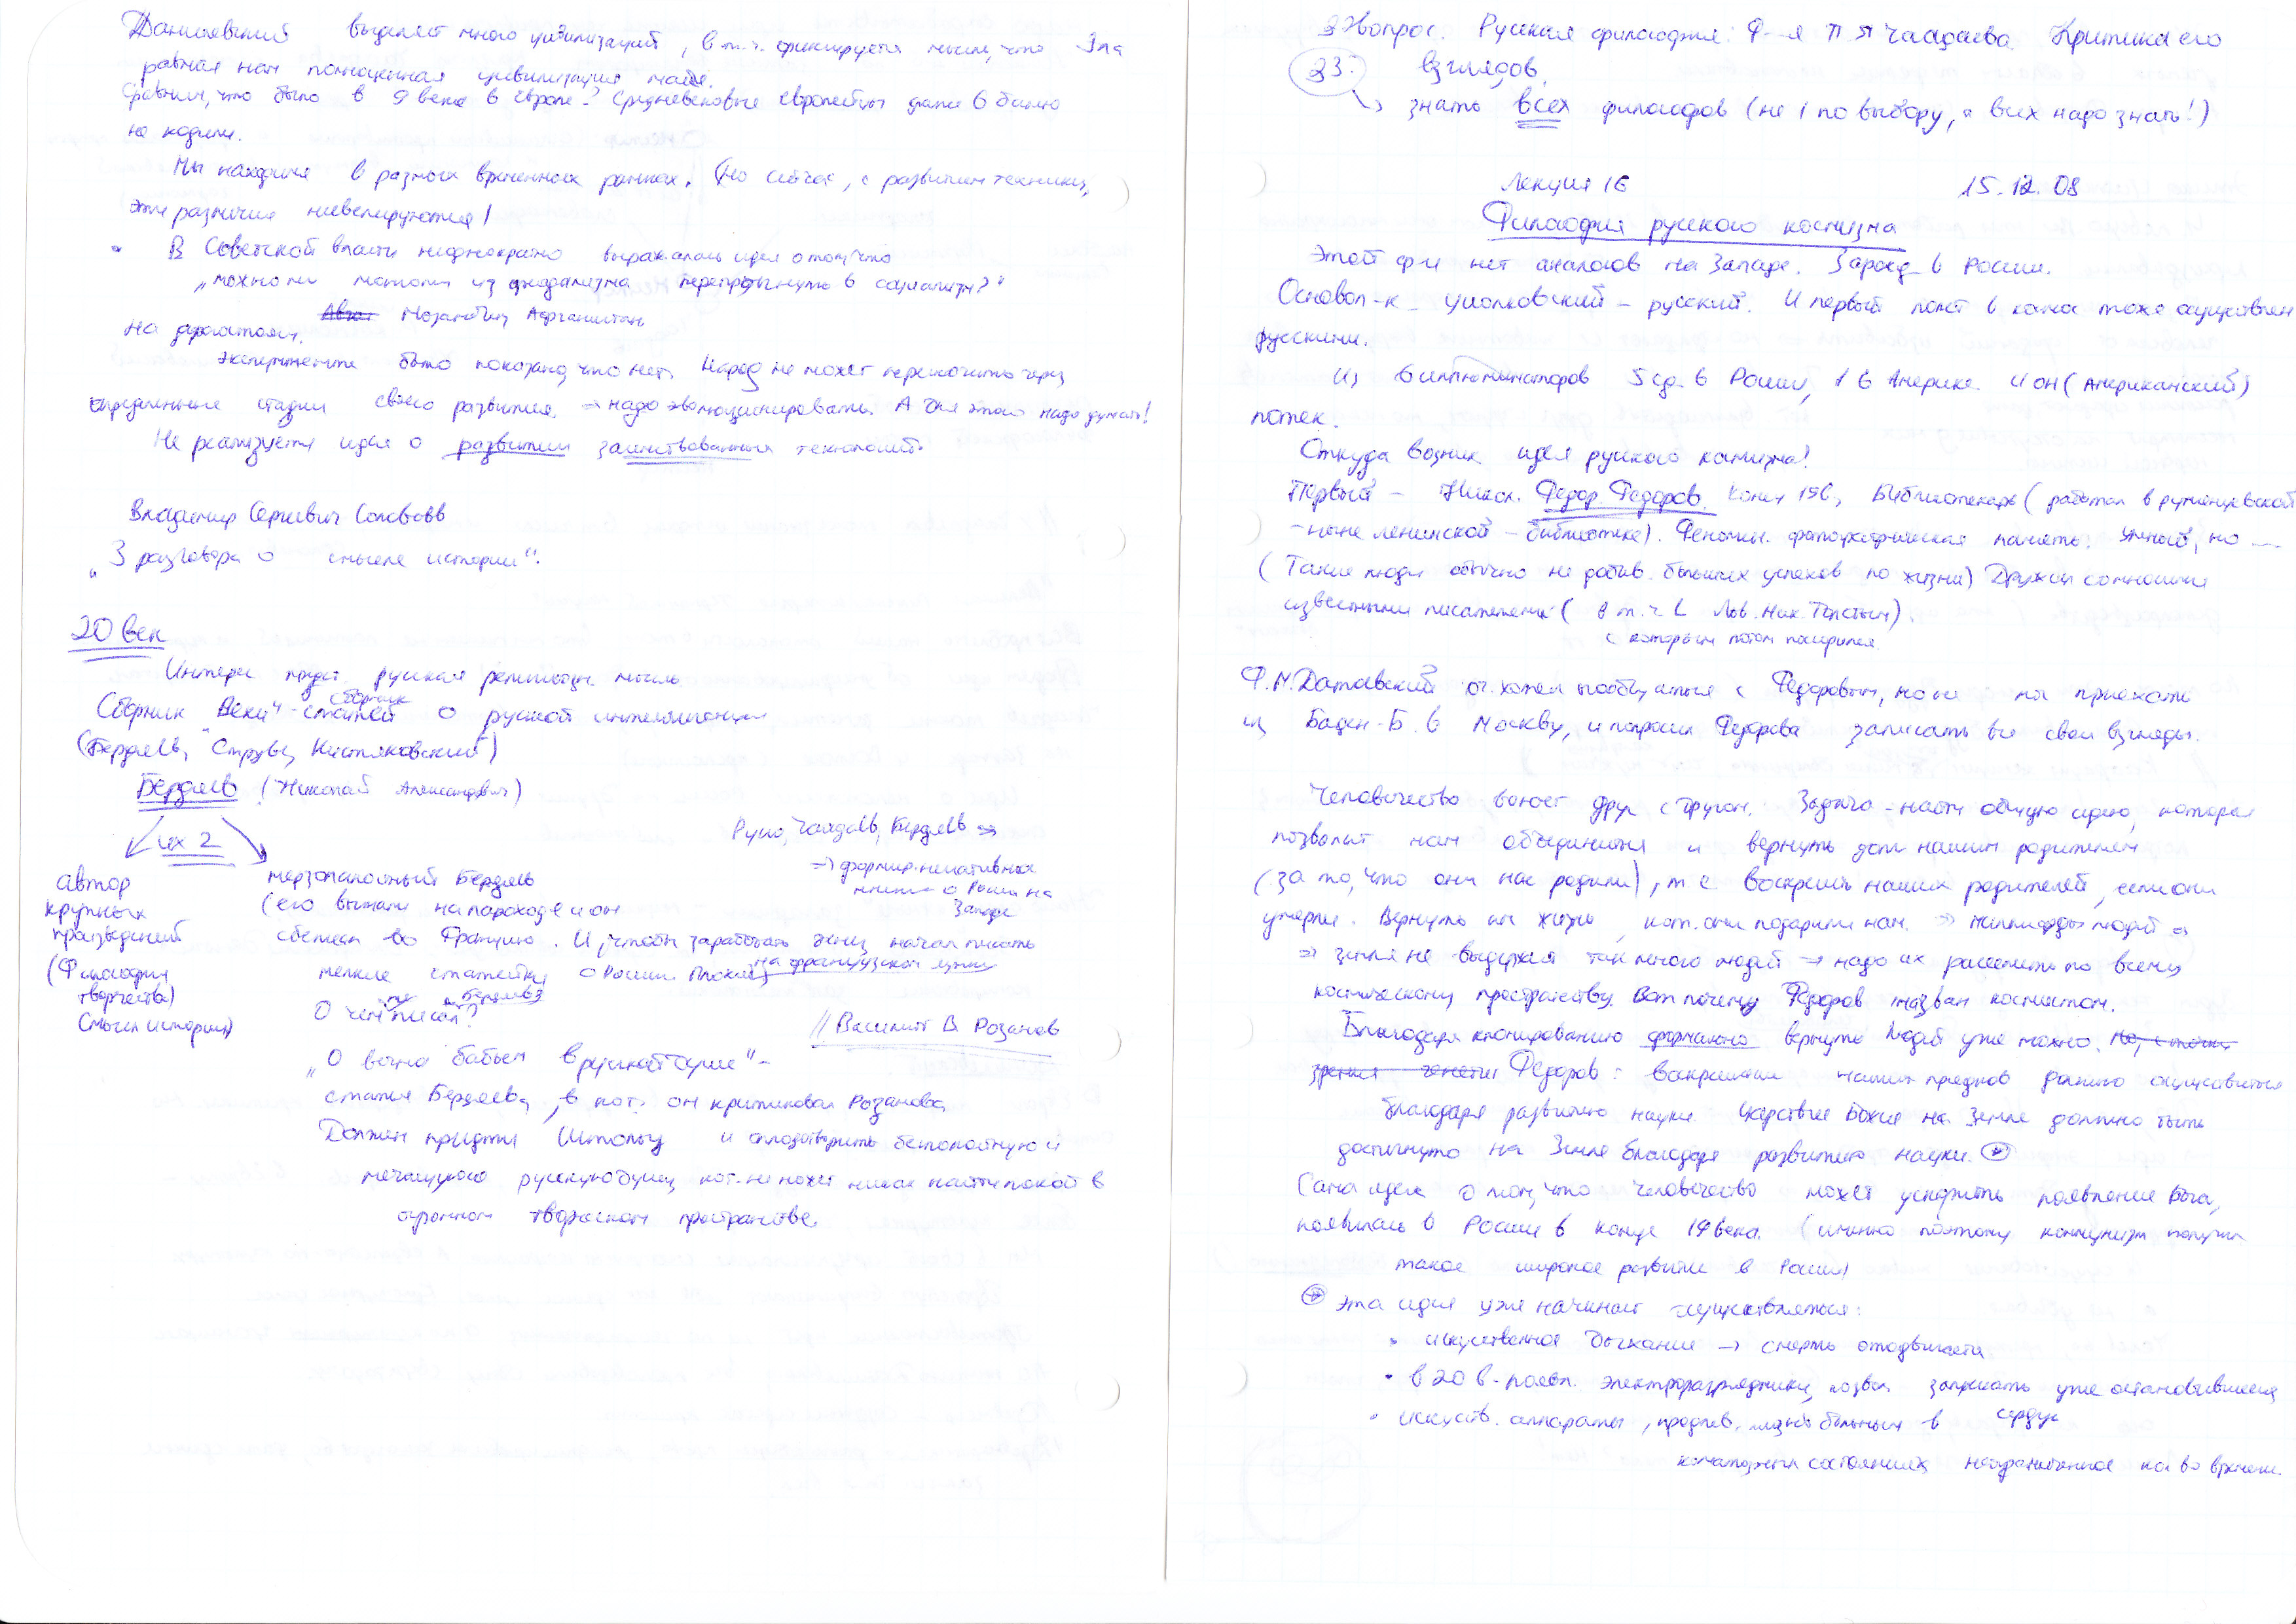 Данилевский выделяет много цивилизаций, в т.ч. фиксируется мысль, что Эта
равная нам полноценная цивилизация наша.
Сравним, что было в 9 веке в Европе? Средневековые европейцы даже в баню
не ходили.
Мы находимся в разных временных рамках. (Но сейчас, с развитием техники,
эти различия нивелируются)
• В Советской власти неоднократно выражалась идея о том, что
„можно ли монголам из феодализма перепрыгнуть в социализм?"
Мозамбик, Афганистан
На
Экспериментально было показано, что нет. Народ не может перескочить через
определенные стадии своего развития. → надо эволюционировать. А для этого надо думать!
Не реализуется идея о развитии заимствованных технологий.
Владимир Сергеевич Соловьёв
„3 разговора о смысле истории".
20 век
Интерес предст. русская религиозн. мысль
сборник
Сборник „Вехи" - статей о русской интеллигенции
(Бердяев, Струве, Кистяковский)
Бердяев (Николай Александрович)
их 2
Руно, Чаадаев, Бердяев ⇒
→ формир. негативное
мнение о России на
Западе
автор
крупных
произведений
(Философия
творчества)
Смысл истории)
мерзопакостный Бердяев
(его выгнали на пароходе и он
сбежал во Францию. И, чтобы заработать денег, начал писать
мелкие статейки о России. Плохие,
на французском языке
О чем писал?
// Василий В. Розанов
„О вечно бабьем в русской душе" -
статья Бердяева, в кот. он критиковал Розанова
Должен прийти Штольц и оплодотворить беспокойную и
мечущуюся русскую душу, кот. не может никак найти покой в
огромном творческом пространстве.
2й вопрос. Русская философия: Ф-я П.Я Чаадаева. Критика его
23. взглядов.
→ знать всех философов (не 1 по выбору, а всех надо знать!)
Лекция 16 15.12.08
Философия русского космизма
Этой ф-и нет аналогов на Западе. Зарод. в России.
Основоп-к - Циолковский - русский. И первый полет в космос тоже осуществлен
русскими.
Из 6 иллюминаторов 5 сд. в России, 1 в Америке. И он (Американский)
потек.
Откуда возник идея русского космизма!
Первый - Никол. Федор. Федоров. Конец 19в, Библиотекарь (работал в румянцевской
- ныне ленинской - библиотеке). Феномен. фотографическая память. Умный, но —
(Такие люди обычно не добив. больших успехов по жизни) Дружил со многими
известными писателями (в т.ч. с Лов. Ник. Толстым)
с которым потом поссорился.
Ф.М.Достоевский оч. хотел пообщаться с Федоровым, но не мог приехать
из Баден-Б. в Москву, и попросил Федорова записать все свои взгляды.
Человечество воюет друг с другом. Задача - найти общую идею, которая
позволит нам объединиться и вернуть долг нашим родителям
(за то, что они нас родили), т.е. воскресить наших родителей, если они
умерли. Вернуть им жизнь, кот. они подарили нам. ⇒ миллиарды людей ⇒
⇒ земля не выдержит так много людей → надо их расселить по всему
космическому пространству. Вот почему Федоров назван космистом.
Благодаря клонированию формально вернуть людей уже можно. Но, с точки
зрения генетики Федоров: воскрешение наших предков должно осуществиться
благодаря развитию науки. Царствие Божие на Земле должно быть
достигнуто на Земле благодаря развитию науки. ⊛
Сама идея о том, что человечество может ускорить появление Бога,
появилась в России в конце 19 века. (именно поэтому коммунизм получил
такое широкое развитие в России)
⊛ Эта идея уже начинает осуществляться:
• искусственное дыхание → смерть отодвигается
• в 20 в. появл. электроразрядники, позвол. запускать уже остановившееся
сердце
• искуств. аппараты, продлев. жизнь больным в
коматозных состояниях неограниченное кол-во времени.